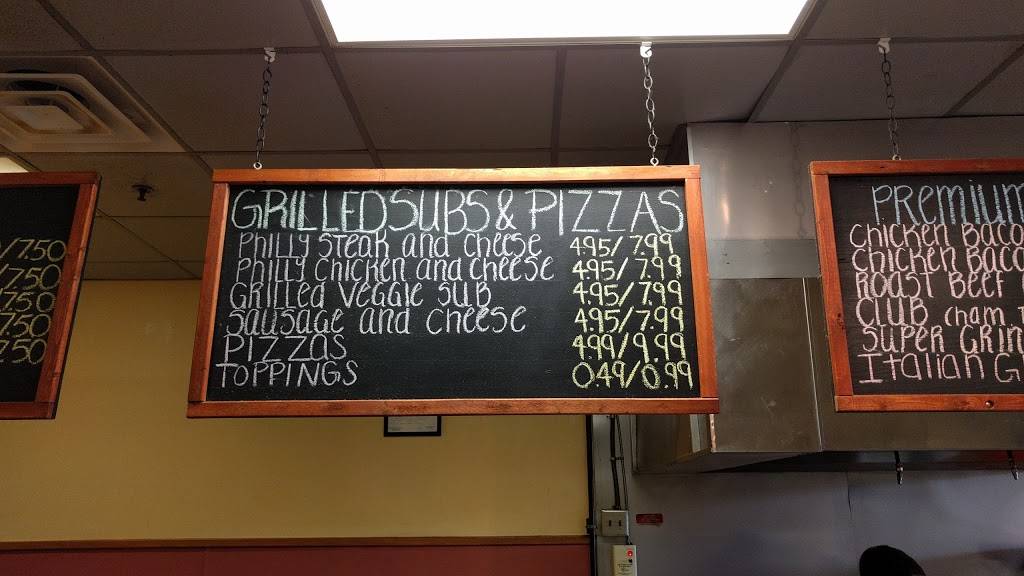 /7.50
/7.50
7.50
7.50
7.50
GRILLED SUBS & PIZZAS
PHILLY STEAK AND CHEESE 4.95/7.99
PHILLY CHICKEN AND CHEESE 4.95/7.99
GRILLED VEGGIE SUB 4.95/7.99
SAUSAGE AND CHEESE 4.95/7.99
PIZZAS 4.99/9.99
TOPPINGS 0.49/0.99
PREMIUM
CHICKEN BACO
CHICKEN BACO
ROAST BEEF
CLUB CHAM T
SUPER GRIN
ITALIAN G